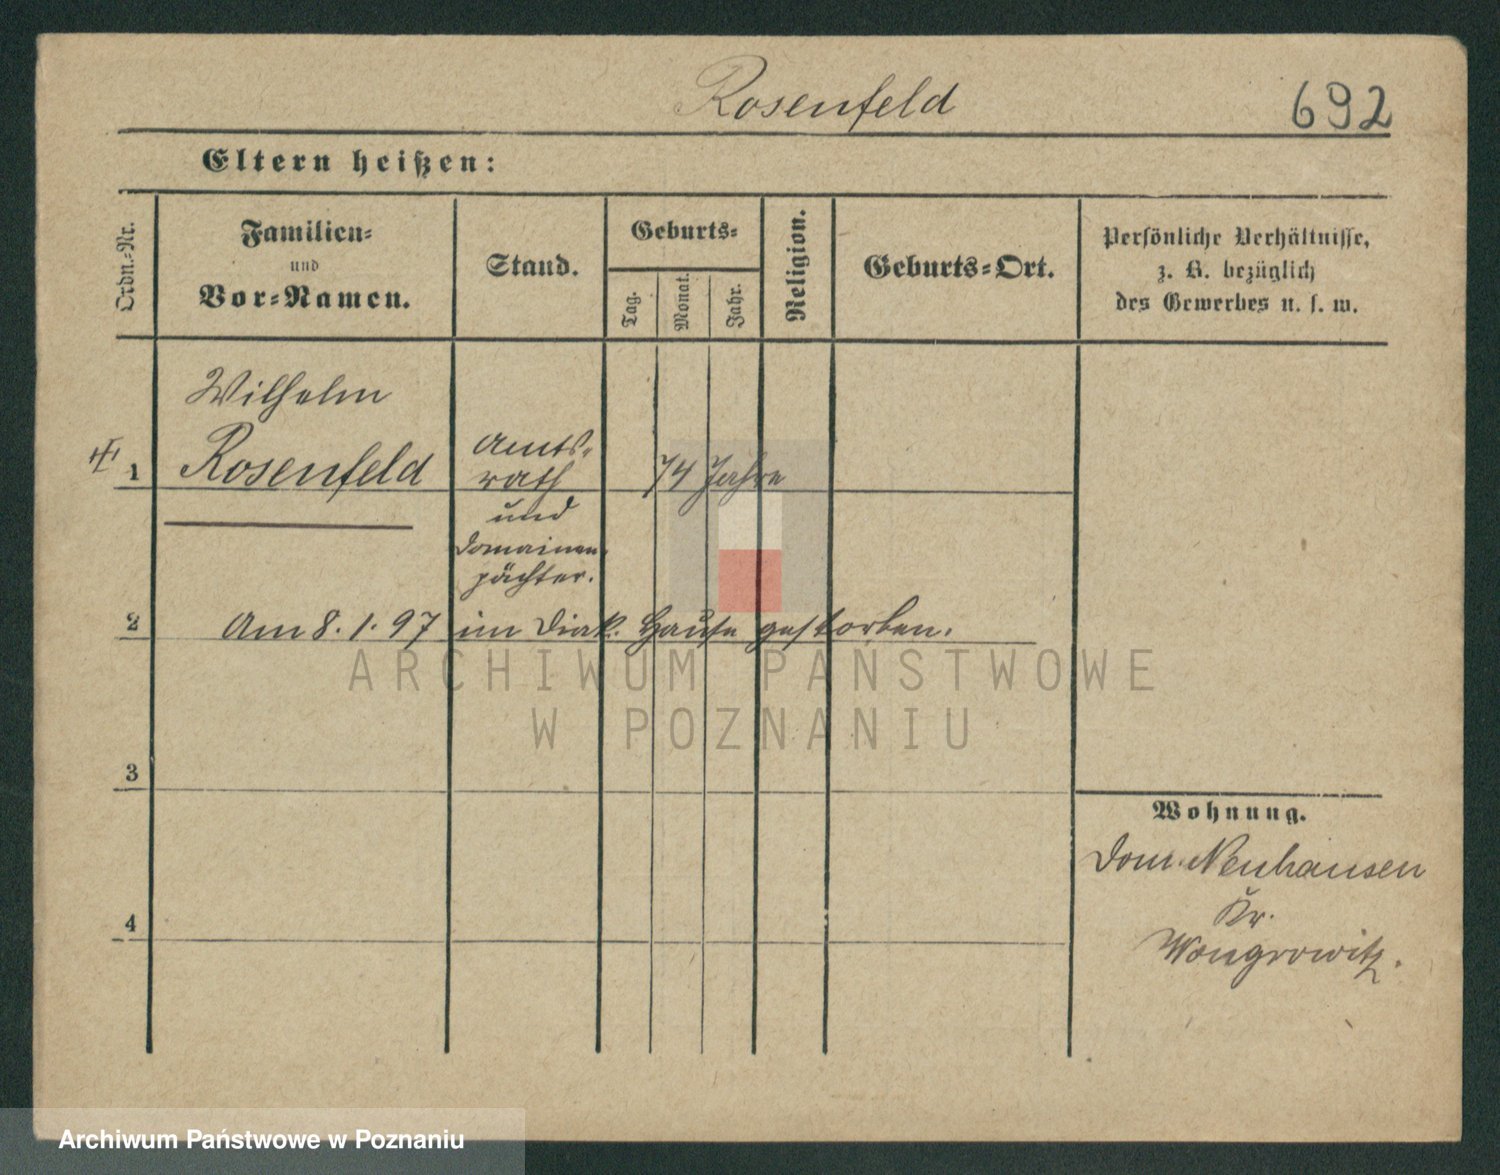 Rosenfeld
692
Eltern heißen:
Ordn.-Nr.
Familien-
und
Vor-Namen.
Stand.
Geburts-
Tag.
Monat.
Jahr.
Religion.
Geburts-Ort.
Persönliche Verhältnisse,
z. B. bezüglich
des Gewerbes u. s. w.
1
Wilhelm
Rosenfeld
Amts-
rath
und
Domainen
pächter.
74 Jahre
2
Am 8. 1. 97 im Diak. Hause gestorben.
3
4
Wohnung.
Dom. Neuhausen
Kr.
Wongrowitz.
ARCHIWUM PAŃSTWOWE
W POZNANIU
Archiwum Państwowe w Poznaniu